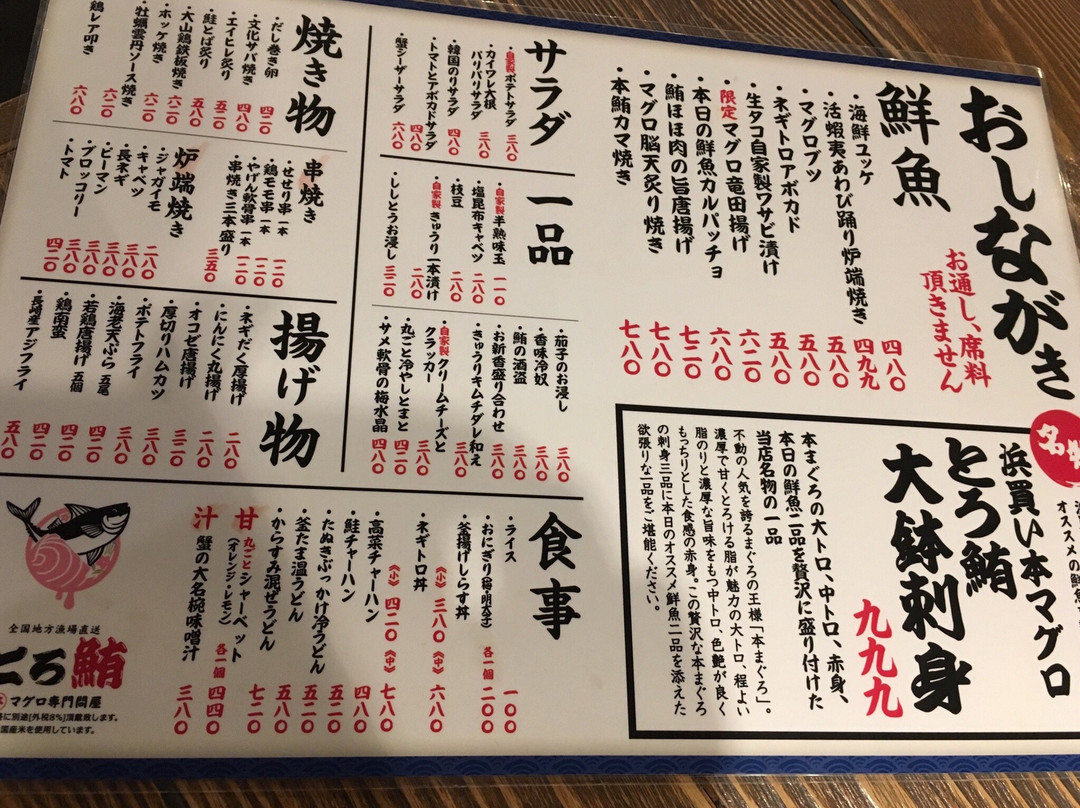 おしながき
お通し、席料
頂きません
鮮魚
・海鮮ユッケ 四八〇
・活蝦夷あわび踊り炉端焼き 四九九
・マグロブツ 五八〇
・ネギトロアボカド 五八〇
・生タコ自家製ワサビ漬け 五八〇
・限定マグロ竜田揚げ 六二〇
・本日の鮮魚カルパッチョ 六八〇
・鮪ほほ肉の旨唐揚げ 七二〇
・マグロ脳天炙り焼き 七八〇
・本鮪カマ焼き 七八〇
オススメの鮮魚
浜買い本マグロ
とろ鮪
大鉢刺身
九九九
本まぐろの大トロ、中トロ、赤身、
本日の鮮魚二品を贅沢に盛り付けた
当店名物の一品
不動の人気を誇るまぐろの王様「本まぐろ」。
濃厚で甘くとろける脂が魅力の大トロ、程よい
脂のりと濃厚な旨味をもつ中トロ、色艶が良く
もっちりとした食感の赤身。この贅沢な本まぐろ
の刺身三品に本日のオススメ鮮魚二品を添えた
欲張りな一品をご堪能ください。
サラダ
・自家製ポテトサラダ 三八〇
・カイワレ大根
パリパリサラダ 三八〇
・韓国のりサラダ 四八〇
・トマトとアボカドサラダ 四八〇
・蟹シーザーサラダ 六八〇
一品
・自家製半熟味玉 一一〇
・塩昆布キャベツ 二八〇
・枝豆 二八〇
・自家製きゅうり一本漬け 二八〇
・ししとうお浸し 三二〇
・茄子のお浸し 三八〇
・香味冷奴 三八〇
・鮪の酒盗 三八〇
・お新香盛り合わせ 三八〇
・きゅうりキムチダレ和え 三八〇
・自家製クリームチーズと
クラッカー 三八〇
・丸ごと冷やしとまと 四二〇
・サメ軟骨の梅水晶 四八〇
焼き物
・だし巻き卵 四二〇
・文化サバ焼き 四八〇
・エイヒレ炙り 五二〇
・鮭とば炙り 五八〇
・大山鶏鉄板焼き 六二〇
・ホッケ焼き 六二〇
・牡蠣雲丹ソース焼き 六二〇
鶏レア叩き 六八〇
串焼き
・せせり串 一本 一二〇
・鶏モモ串 一本 一二〇
・やげん軟骨串 一本 一二〇
・串焼き三本盛り 三五〇
炉端焼き
・ジャガイモ 二八〇
・キャベツ 三八〇
・長ネギ 三八〇
・ピーマン 三八〇
・ブロッコリー 三八〇
・トマト 四二〇
揚げ物
・ネギだく厚揚げ 二八〇
・にんにく丸揚げ 二八〇
・オコゼ唐揚げ 三二〇
・厚切りハムカツ 三八〇
・ポテトフライ 三八〇
・海老天ぷら 五尾 四二〇
・若鶏唐揚げ 五個 四二〇
・鶏南蛮 四二〇
・長崎産アジフライ 五八〇
食事
・ライス 一〇〇
・おにぎり(梅・明太子) 各一個 二〇〇
・釜揚げしらす丼
・ネギトロ丼
《小》三八〇《中》六八〇
・高菜チャーハン
《小》四二〇《中》七八〇
・鮭チャーハン 四八〇
・たぬきぶっかけ冷うどん 五二〇
・釜たま温うどん 五八〇
・からすみ混ぜうどん 七二〇
甘 丸ごとシャーベット
(オレンジ・レモン) 各一個 四四〇
汁 蟹の大名椀味噌汁 三八〇
全国地方漁場直送
とろ鮪
マグロ専門問屋
に別途[外税8%]頂戴致します。
国産米を使用しています。